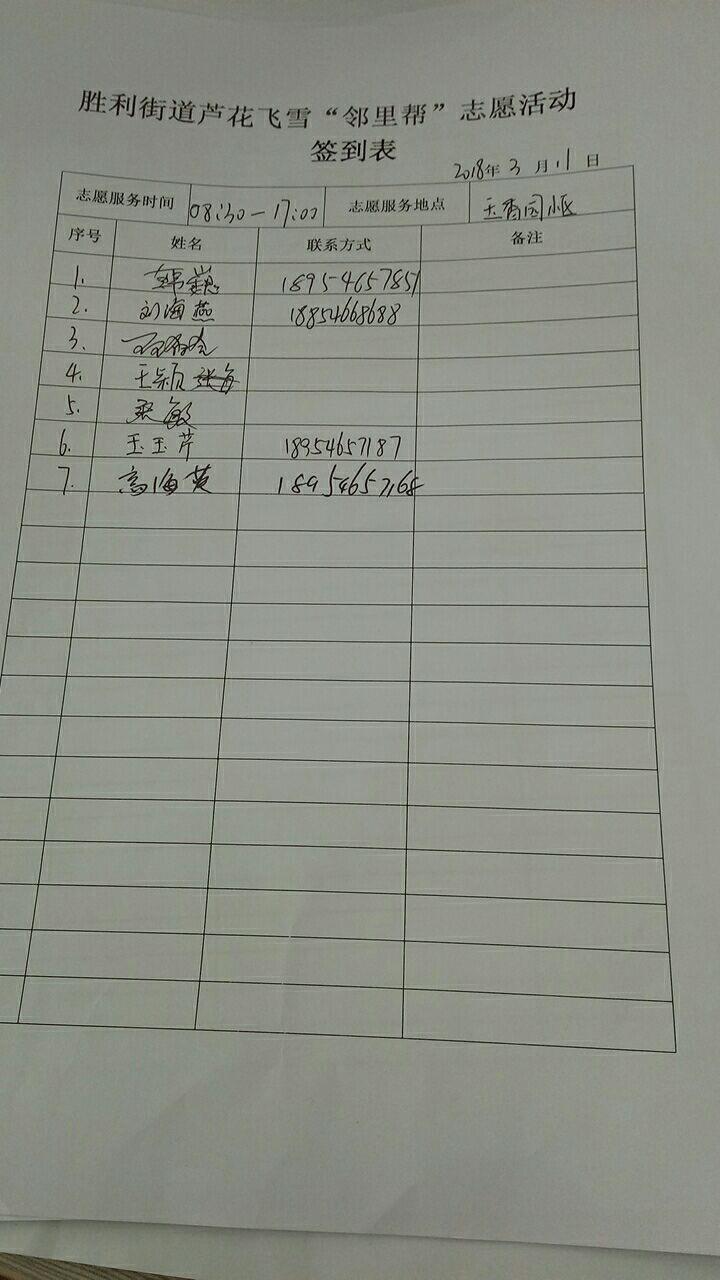 胜利街道芦花飞雪“邻里帮”志愿活动
签到表
2018年3月11日
志愿服务时间 08:30—17:00 志愿服务地点 玉香园小区
序号 姓名 联系方式 备注
1. 韩巍 18954657851
2. 刘海燕 18854668688
3.
4. 王颖
5. 敏
6. 王玉芹 18954657187
7. 高海英 18954657168